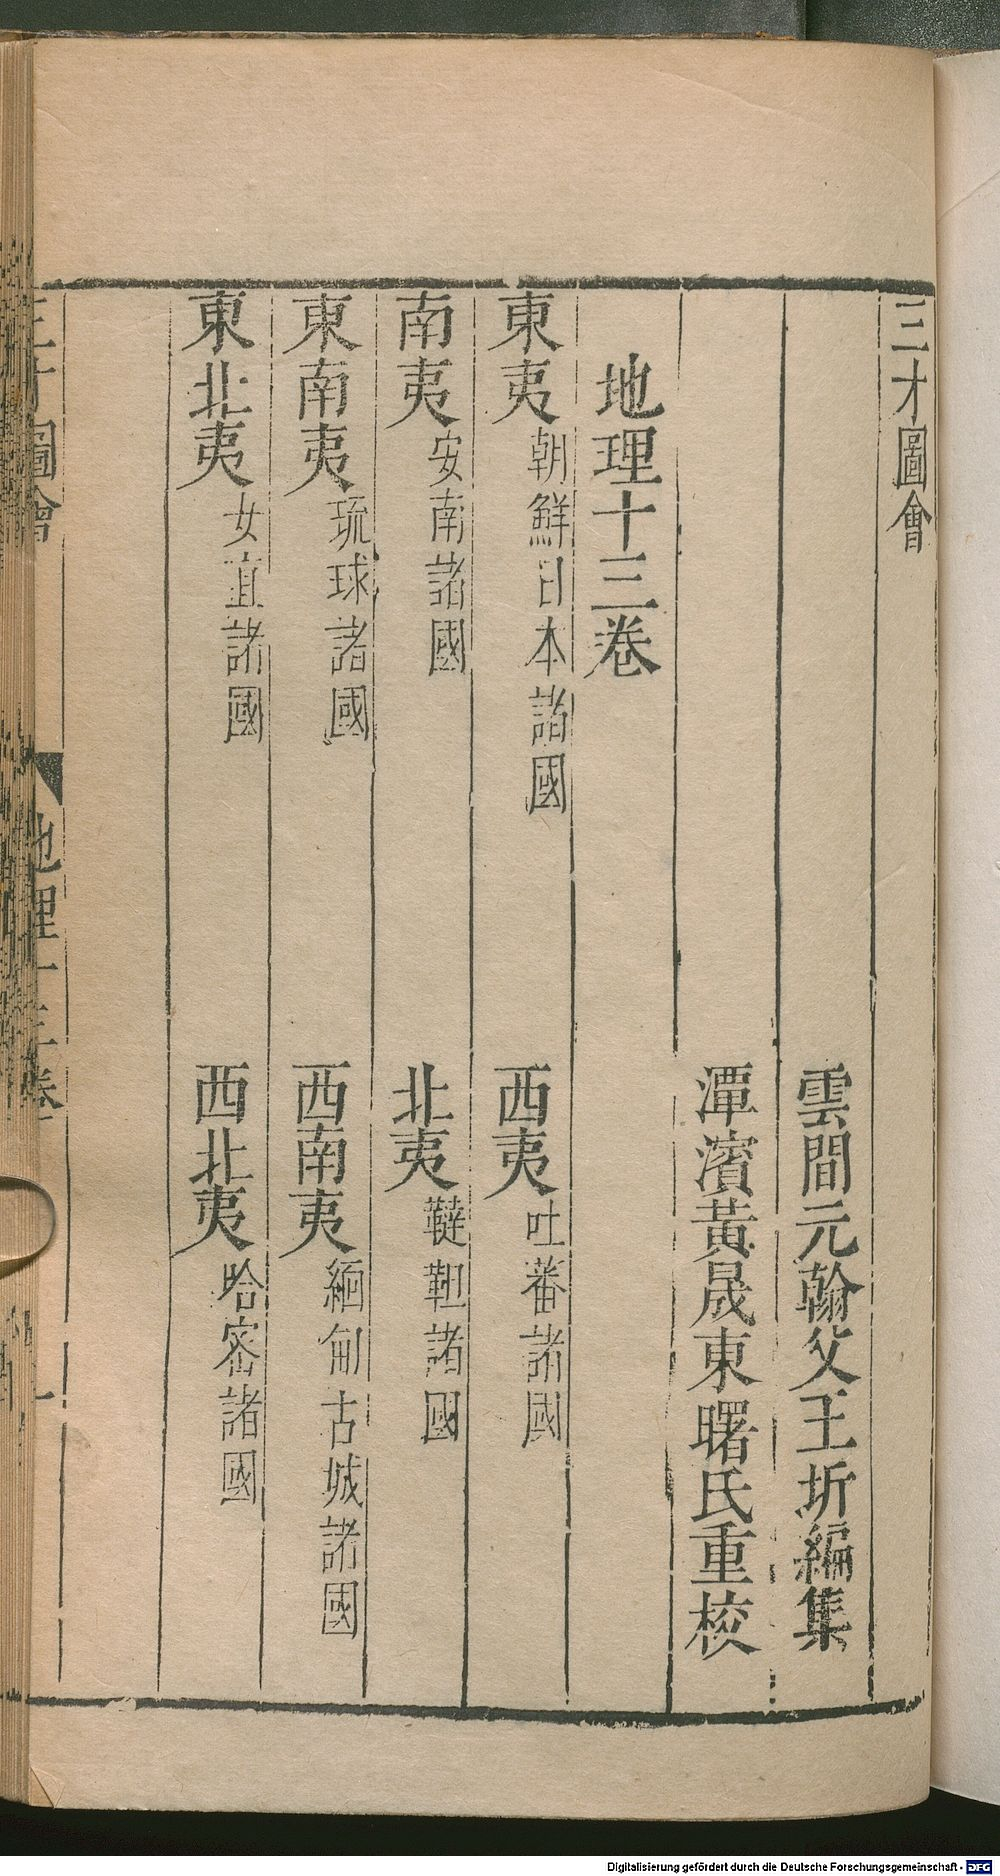 三才圖會
雲間元翰父王圻編集
潭濱黃晟東曙氏重校
地理十三卷
東夷朝鮮日本諸國
西夷吐蕃諸國
南夷安南諸國
北夷韃靼諸國
東南夷琉球諸國
西南夷緬甸古城諸國
東北夷女直諸國
西北夷哈密諸國
三才圖會
地理十三卷
一
Digitalisierung gefördert durch die Deutsche Forschungsgemeinschaft - DFG